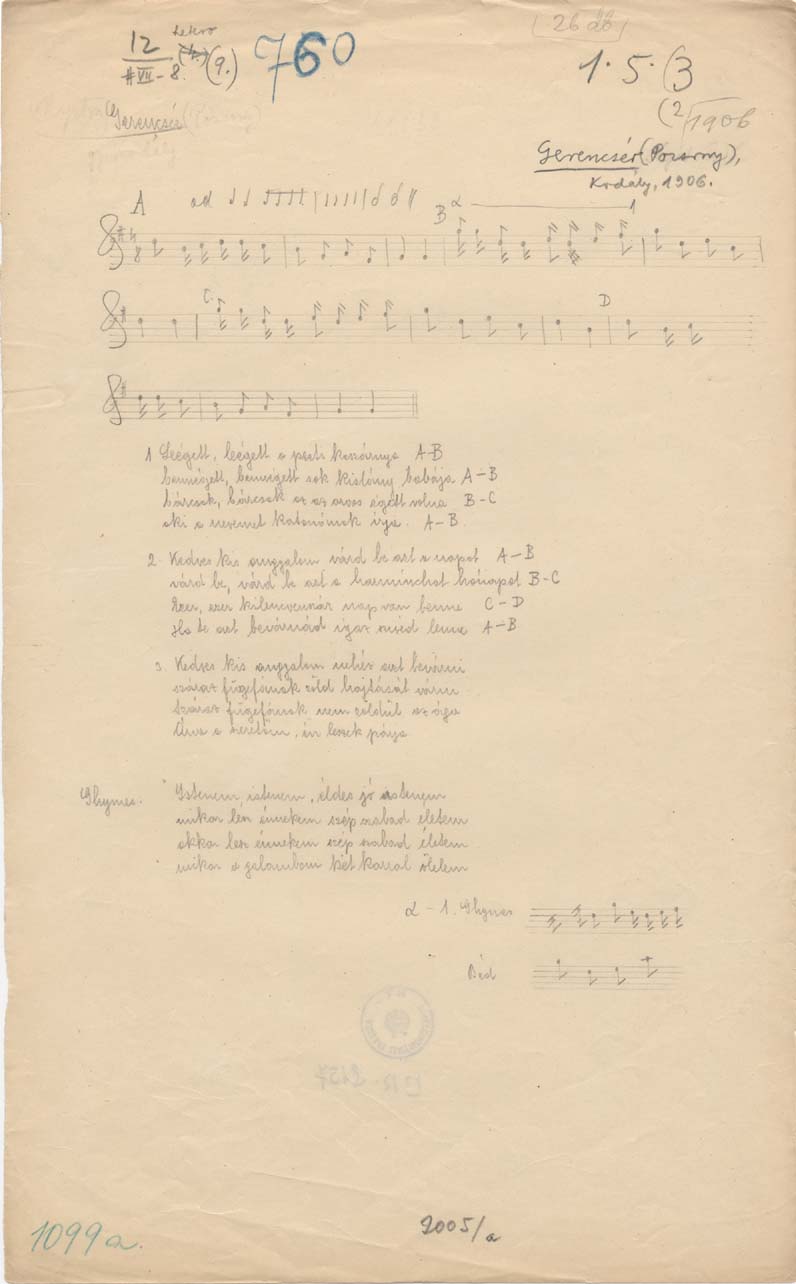 [26
12
#VII-8. (9.)
760
1. 5. (3
(2/1906
Gerencsér
Gerencsér (Pozsony),
Kodály, 1906.
A
B α 1
C D
1 Leégett, leégett a pesti kaszárnya A-B
bennégett, bennégett sok kislány babája A-B
bárcsak, bárcsak ez az orvos égett volna B-C
aki a németnek katonának írja. A-B
2. Kedves kis angyalom várd be azt a napot A-B
várd be, várd be azt a harminchat hónapot B-C
Ezer, ezer kilencvenhár nap van benne C-D
Ha te azt bevárnád igaz lenne A-B
3. Kedves kis angyalom nehéz azt bevárni
száraz fügefának zöld hajtását várni
Száraz fügefának nem zöldül az ága
Árva a szeretőm, én leszek párja
Ghymes. Istenem, istenem, édes jó istenem
mikor lesz énnekem szép szabad életem
akkor lesz énnekem szép szabad életem
mikor a galambom két karral ölelem
α - 1. Ghymes
Béd
1099a.
2005/a